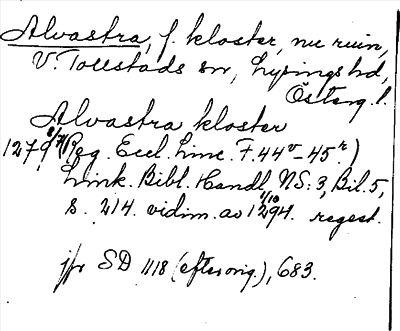 Alvastra, f. kloster, nu ruin,
V. Tollstads sn, Lysings hd,
Österg. l.
Alvastra kloster
1279 8/7 (Reg. Eccl. Linc. F. 44v-45r)
Link. Bibl. Handl. NS: 3, Bil. 5,
s. 214. vidim. av 1/10 1294. regest.
jfr SD 1118 (efter orig.), 683.